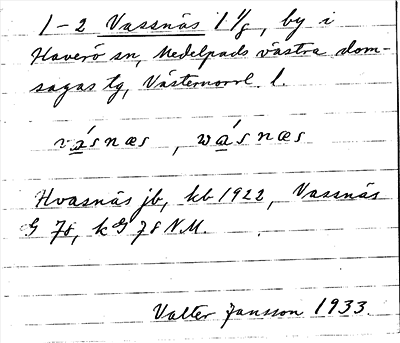 1-2 Vassnäs 1 1/8, by i
Haverö sn, Medelpads västra dom-
sagas tg, Västernorrl. l.
vásnæs, wásnæs
Hvasnäs jb, kb 1922, Vassnäs
G 78, kG 78 N.M.
Valter Jansson 1933.